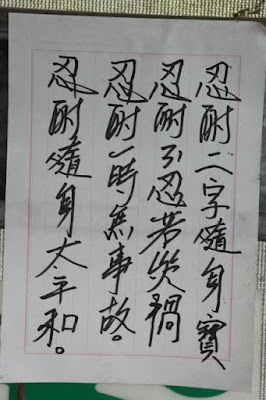 忍耐二字隨身寶
忍耐引忍若災禍
忍耐一時無事故。
忍耐隨身太平和。